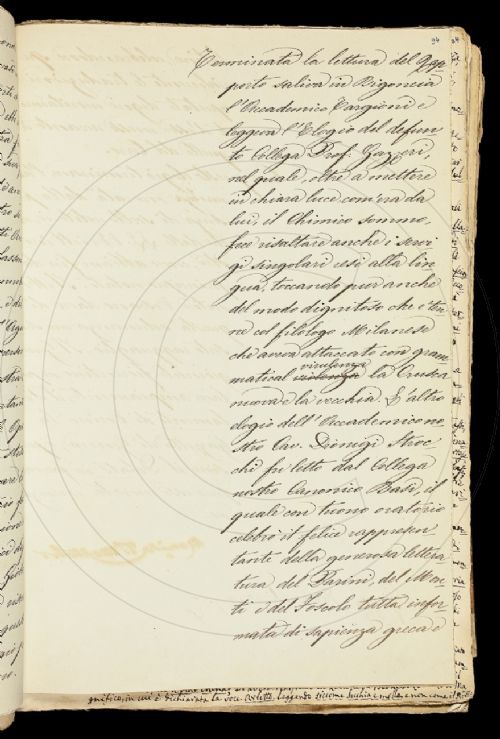 94
Terminata la lettura del Rap-
porto saliva in Bigoncia
l'Accademico Targioni e
leggeva l'Elogio del defun-
to Collega Prof. Gazzeri,
nel quale, oltre a mettere
in chiara luce com'era da
lui, il Chimico sommo,
fece risaltare anche i servi-
gi singolari resi alla lin-
gua, toccando pur anche
del modo dignitoso che ten-
ne col filologo Milanese
che aveva attaccato con gram-
matical violenza virulenza la Crusca
nuova e la vecchia. L'altro
elogio dell'Accademico no-
stro Cav. Dionigi Stroc-
chi fu letto dal Collega
nostro Canonico Basi, il
quale con tuono oratorio
celebrò il felice rappresen-
tante della generosa lettera-
tura del Parini, del Mon-
ti e del Foscolo tutta infor-
mata di sapienza greca e
gnifico, in cui è dichiarata la voce leggendo siccome e non come il